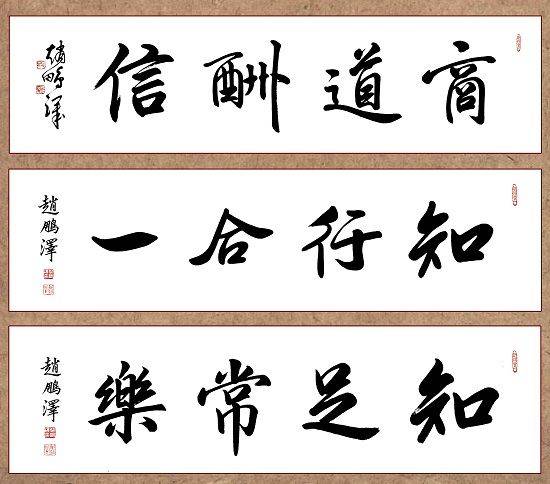 商道酬信
趙鵬澤
知行合一
趙鵬澤
知足常樂
趙鵬澤